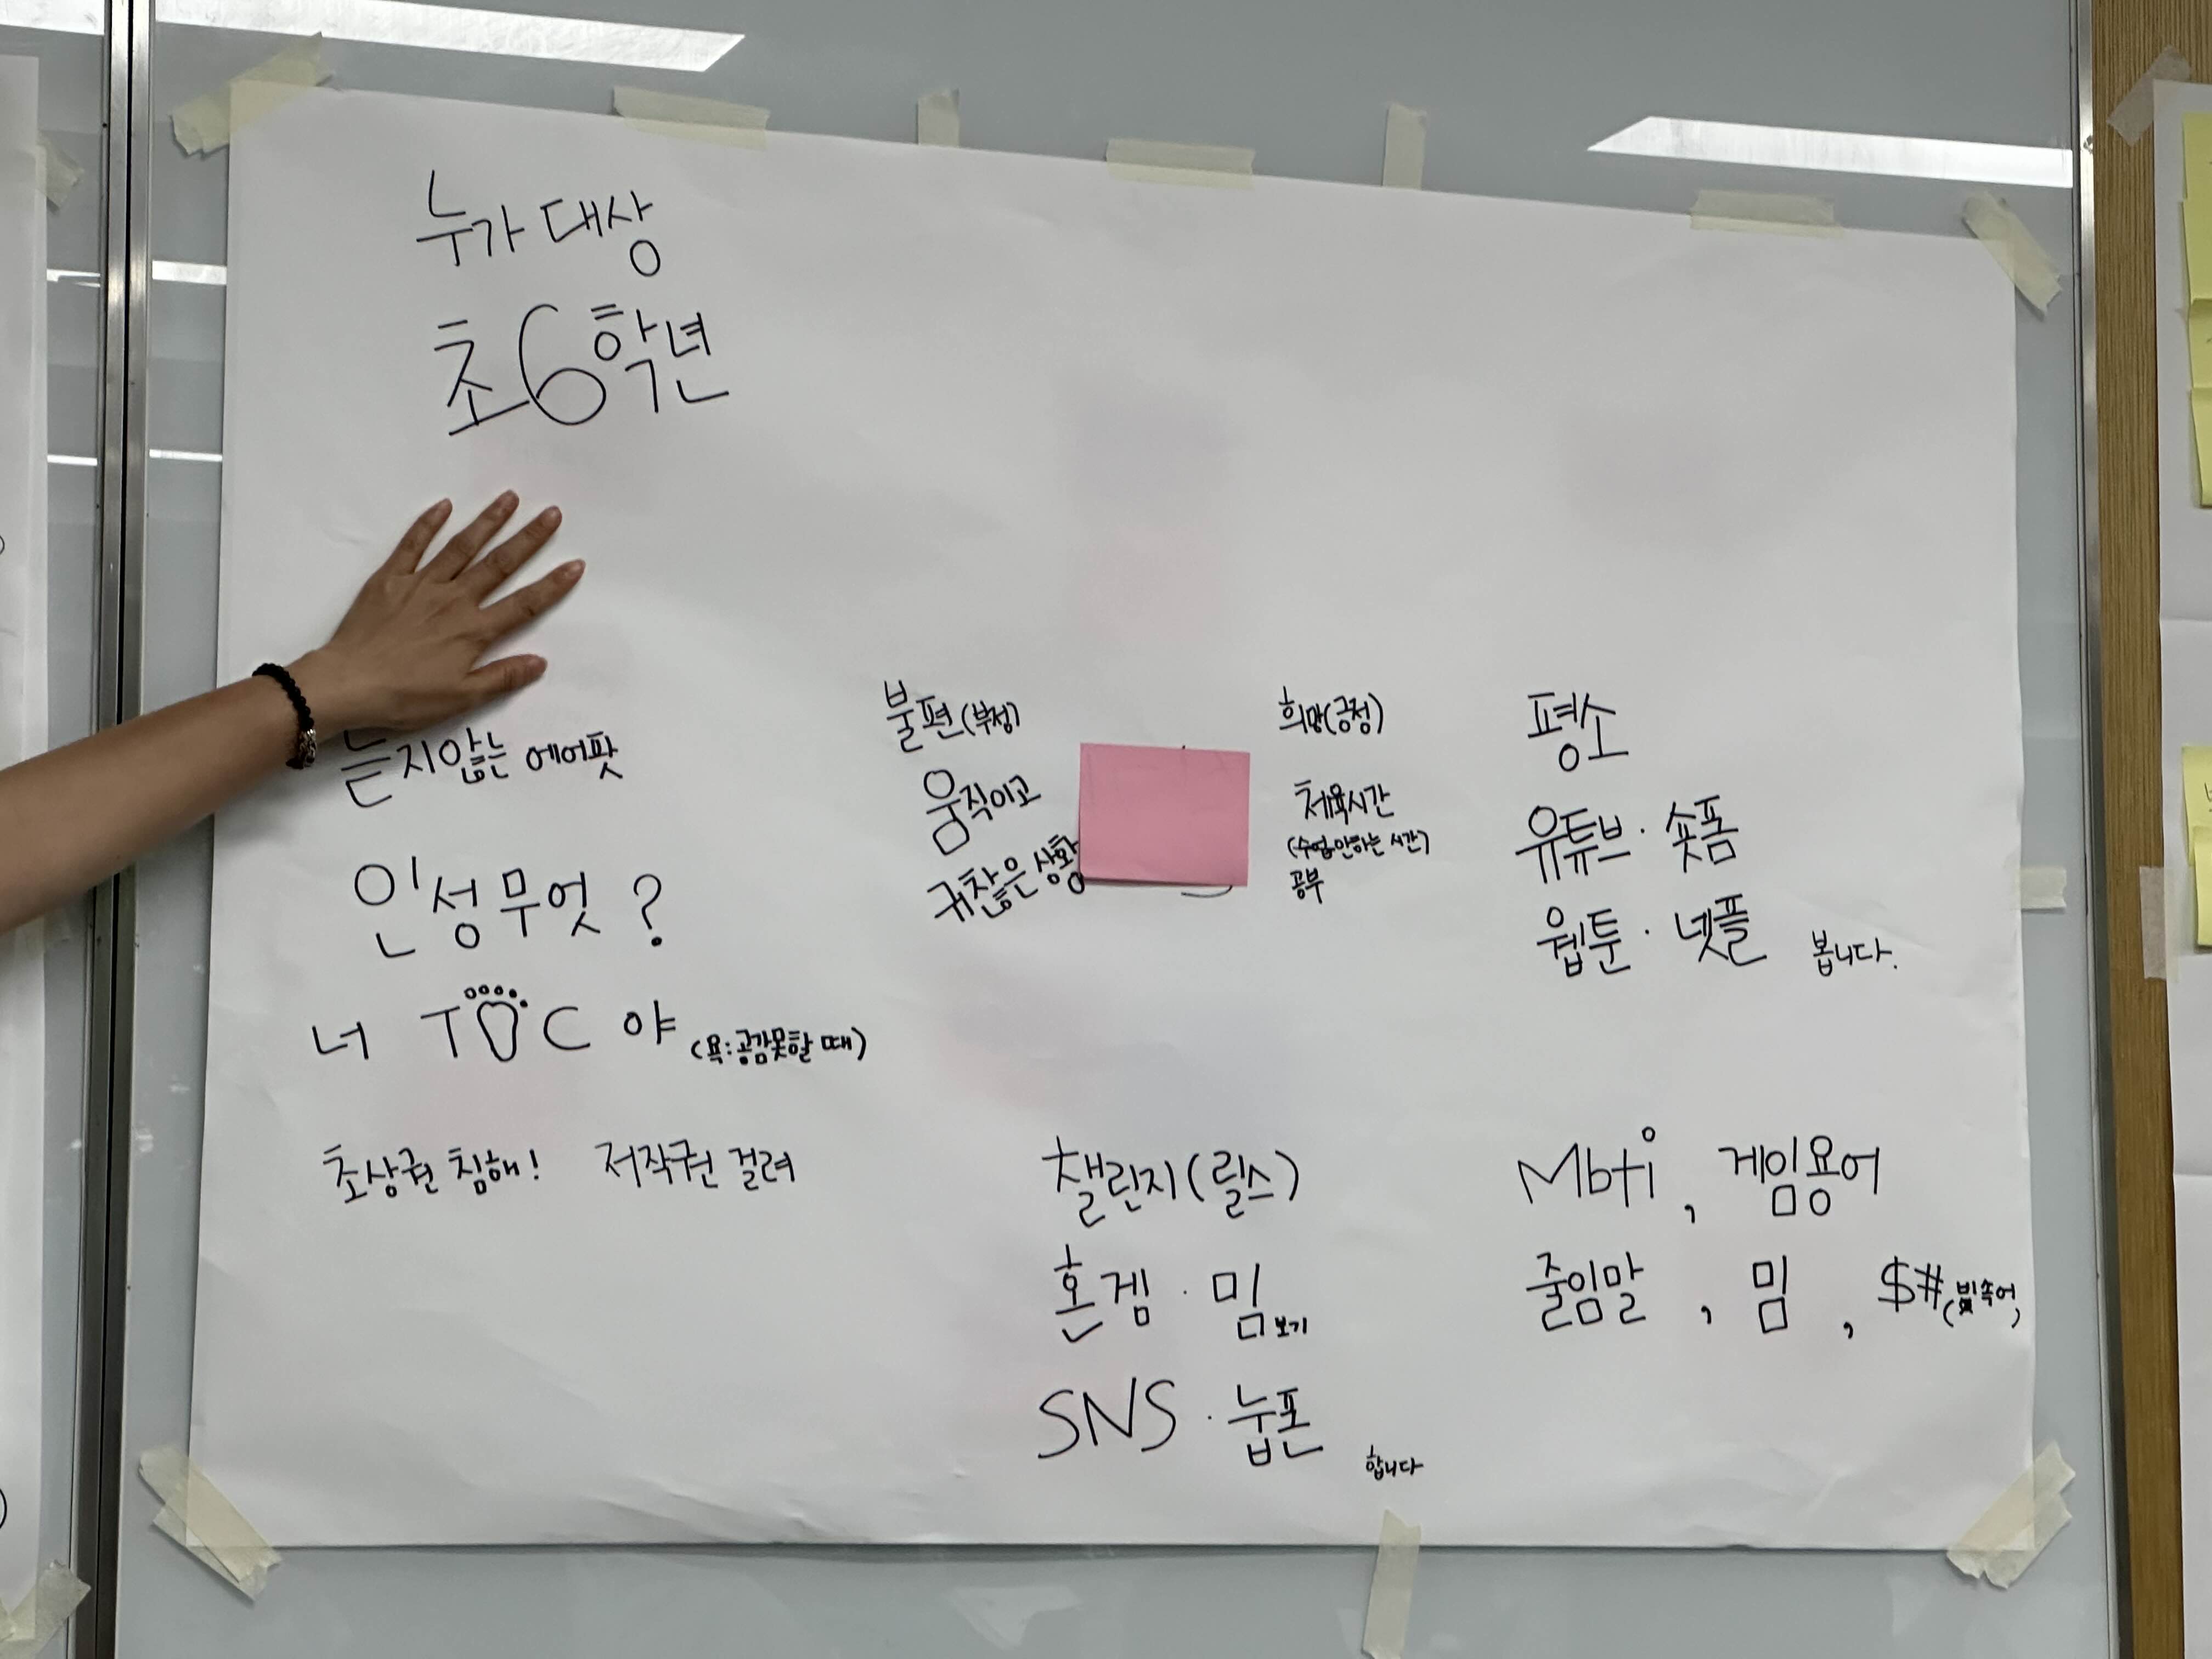 누가 대상
초6학년
듣지않는 에어팟
인성 무엇 ?
너 T C 야 (욕:공감못할 때)
초상권 침해! 저작권 걸려
불편(부정)
움직이고
귀찮은 상황
희망(긍정)
체육시간
(수업안하는 시간)
공부
평소
유튜브 · 숏폼
웹툰 · 넷플 봅니다.
챌린지(릴스)
혼겜 · 밈 보기
SNS · 눕폰 합니다
Mbti , 게임용어
줄임말 , 밈 , $# (빛속어)